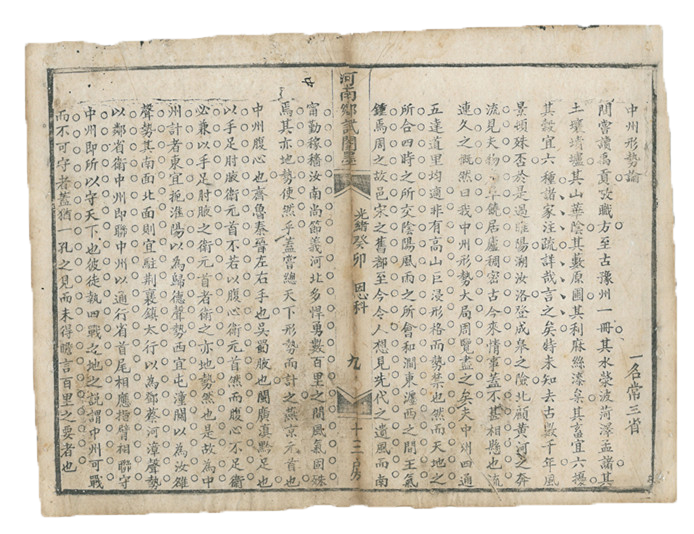 中州形勢論
一名常三省
間嘗讀禹貢攷職方至古豫州一冊其水滎波菏澤孟諸其
土壤墳壚其山華陰其藪原圃其利麻絲漆枲其畜宜六擾
其穀宜六種諸家注疏詳哉言之矣特未知去古數千年風
景頓殊否於是過睢陽溯汝洛登成皋之險北顧黃河之奔
流見天物豐饒居廬稠密古今來情事蓋不甚相懸也流
連久之慨然曰我中州形勢大局周覽盡之矣夫中州四通
五達道里均適非有高山巨浸形格而勢禁也然而天地之
所合四時之所交陰陽風雨之所會和澗東瀍西之間王氣
鍾焉周之故邑宋之舊都至今令人想見先代之遺風而南
河南鄉試闈墨
光緒癸卯 恩科
九
十三房
甯勤稼穡汝南尚節義河北多悍勇數百里之間風氣固殊
焉其亦地勢使然乎蓋嘗總天下形勢而計之燕京元首也
中州腹心也齊魯秦晉左右手也吳蜀肢也閩廣滇黔足也
以手足肘腋衛元首不若以腹心衛元首然而腹心不足衛
必兼以手足肘腋之衛元首者衛之亦地勢然也是故為中
州計者東宜扼淮陽以為歸德聲勢西宜屯潼關以為汝雒
聲勢其南面北面則宜駐荊襄鎮太行以為鄢蔡河漳聲勢
以鄰省衛中州即聯中州以通行省首尾相應指臂相聯守
中州即所以守天下也彼徒執四戰之地之說謂中州可戰
而不可守者蓋猶一孔之見而未得曕言百里之要者也